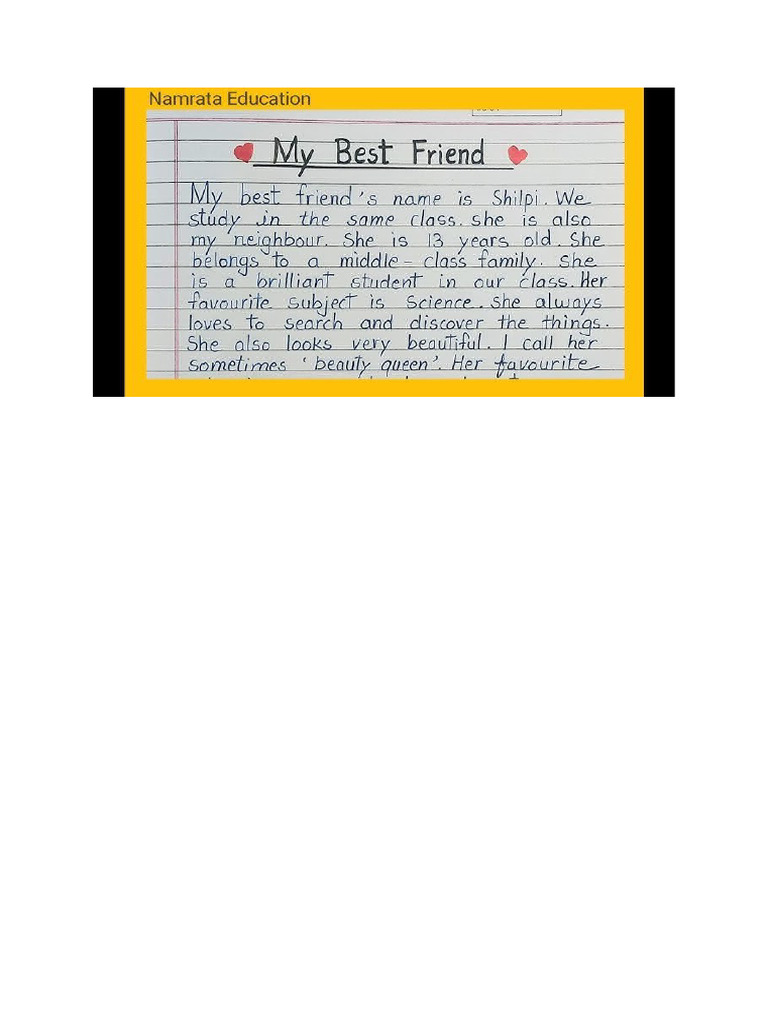 Namrata Education
My Best Friend
My best friend's name is Shilpi. We
study in the same class. she is also
my neighbour. She is 13 years old. She
belongs to a middle-class family. She
is a brilliant student in our class. Her
favourite subject is Science. She always
loves to search and discover the things.
She also looks very beautiful. I call her
sometimes 'beauty queen'. Her favourite